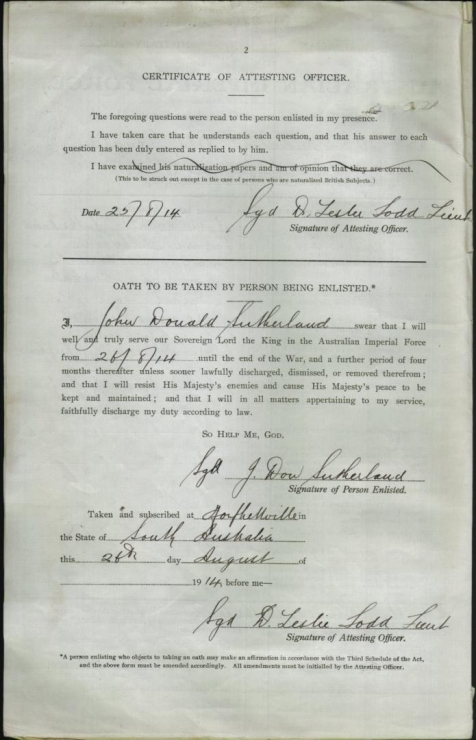 2
CERTIFICATE OF ATTESTING OFFICER.
The foregoing questions were read to the person enlisted in my presence.
I have taken care that he understands each question, and that his answer to each
question has been duly entered as replied to by him.
I have examined his naturalization papers and am of opinion that they are correct.
(This to be struck out except in the case of persons who are naturalized British Subjects.)
Date 25/8/14 Sgd D. Leslie Todd Lieut
Signature of Attesting Officer.
OATH TO BE TAKEN BY PERSON BEING ENLISTED.*
I, John Donald Sutherland swear that I will
well and truly serve our Sovereign Lord the King in the Australian Imperial Force
from 26/8/14 until the end of the War, and a further period of four
months thereafter unless sooner lawfully discharged, dismissed, or removed therefrom;
and that I will resist His Majesty's enemies and cause His Majesty's peace to be
kept and maintained; and that I will in all matters appertaining to my service,
faithfully discharge my duty according to law.
SO HELP ME, GOD.
Sgd J. Don Sutherland
Signature of Person Enlisted.
Taken and subscribed at Morphettville in
the State of South Australia
this 26th day August of
1914, before me—
Sgd D. Leslie Todd Lieut
Signature of Attesting Officer.
*A person enlisting who objects to taking an oath may make an affirmation in accordance with the Third Schedule of the Act,
and the above form must be amended accordingly. All amendments must be initialled by the Attesting Officer.